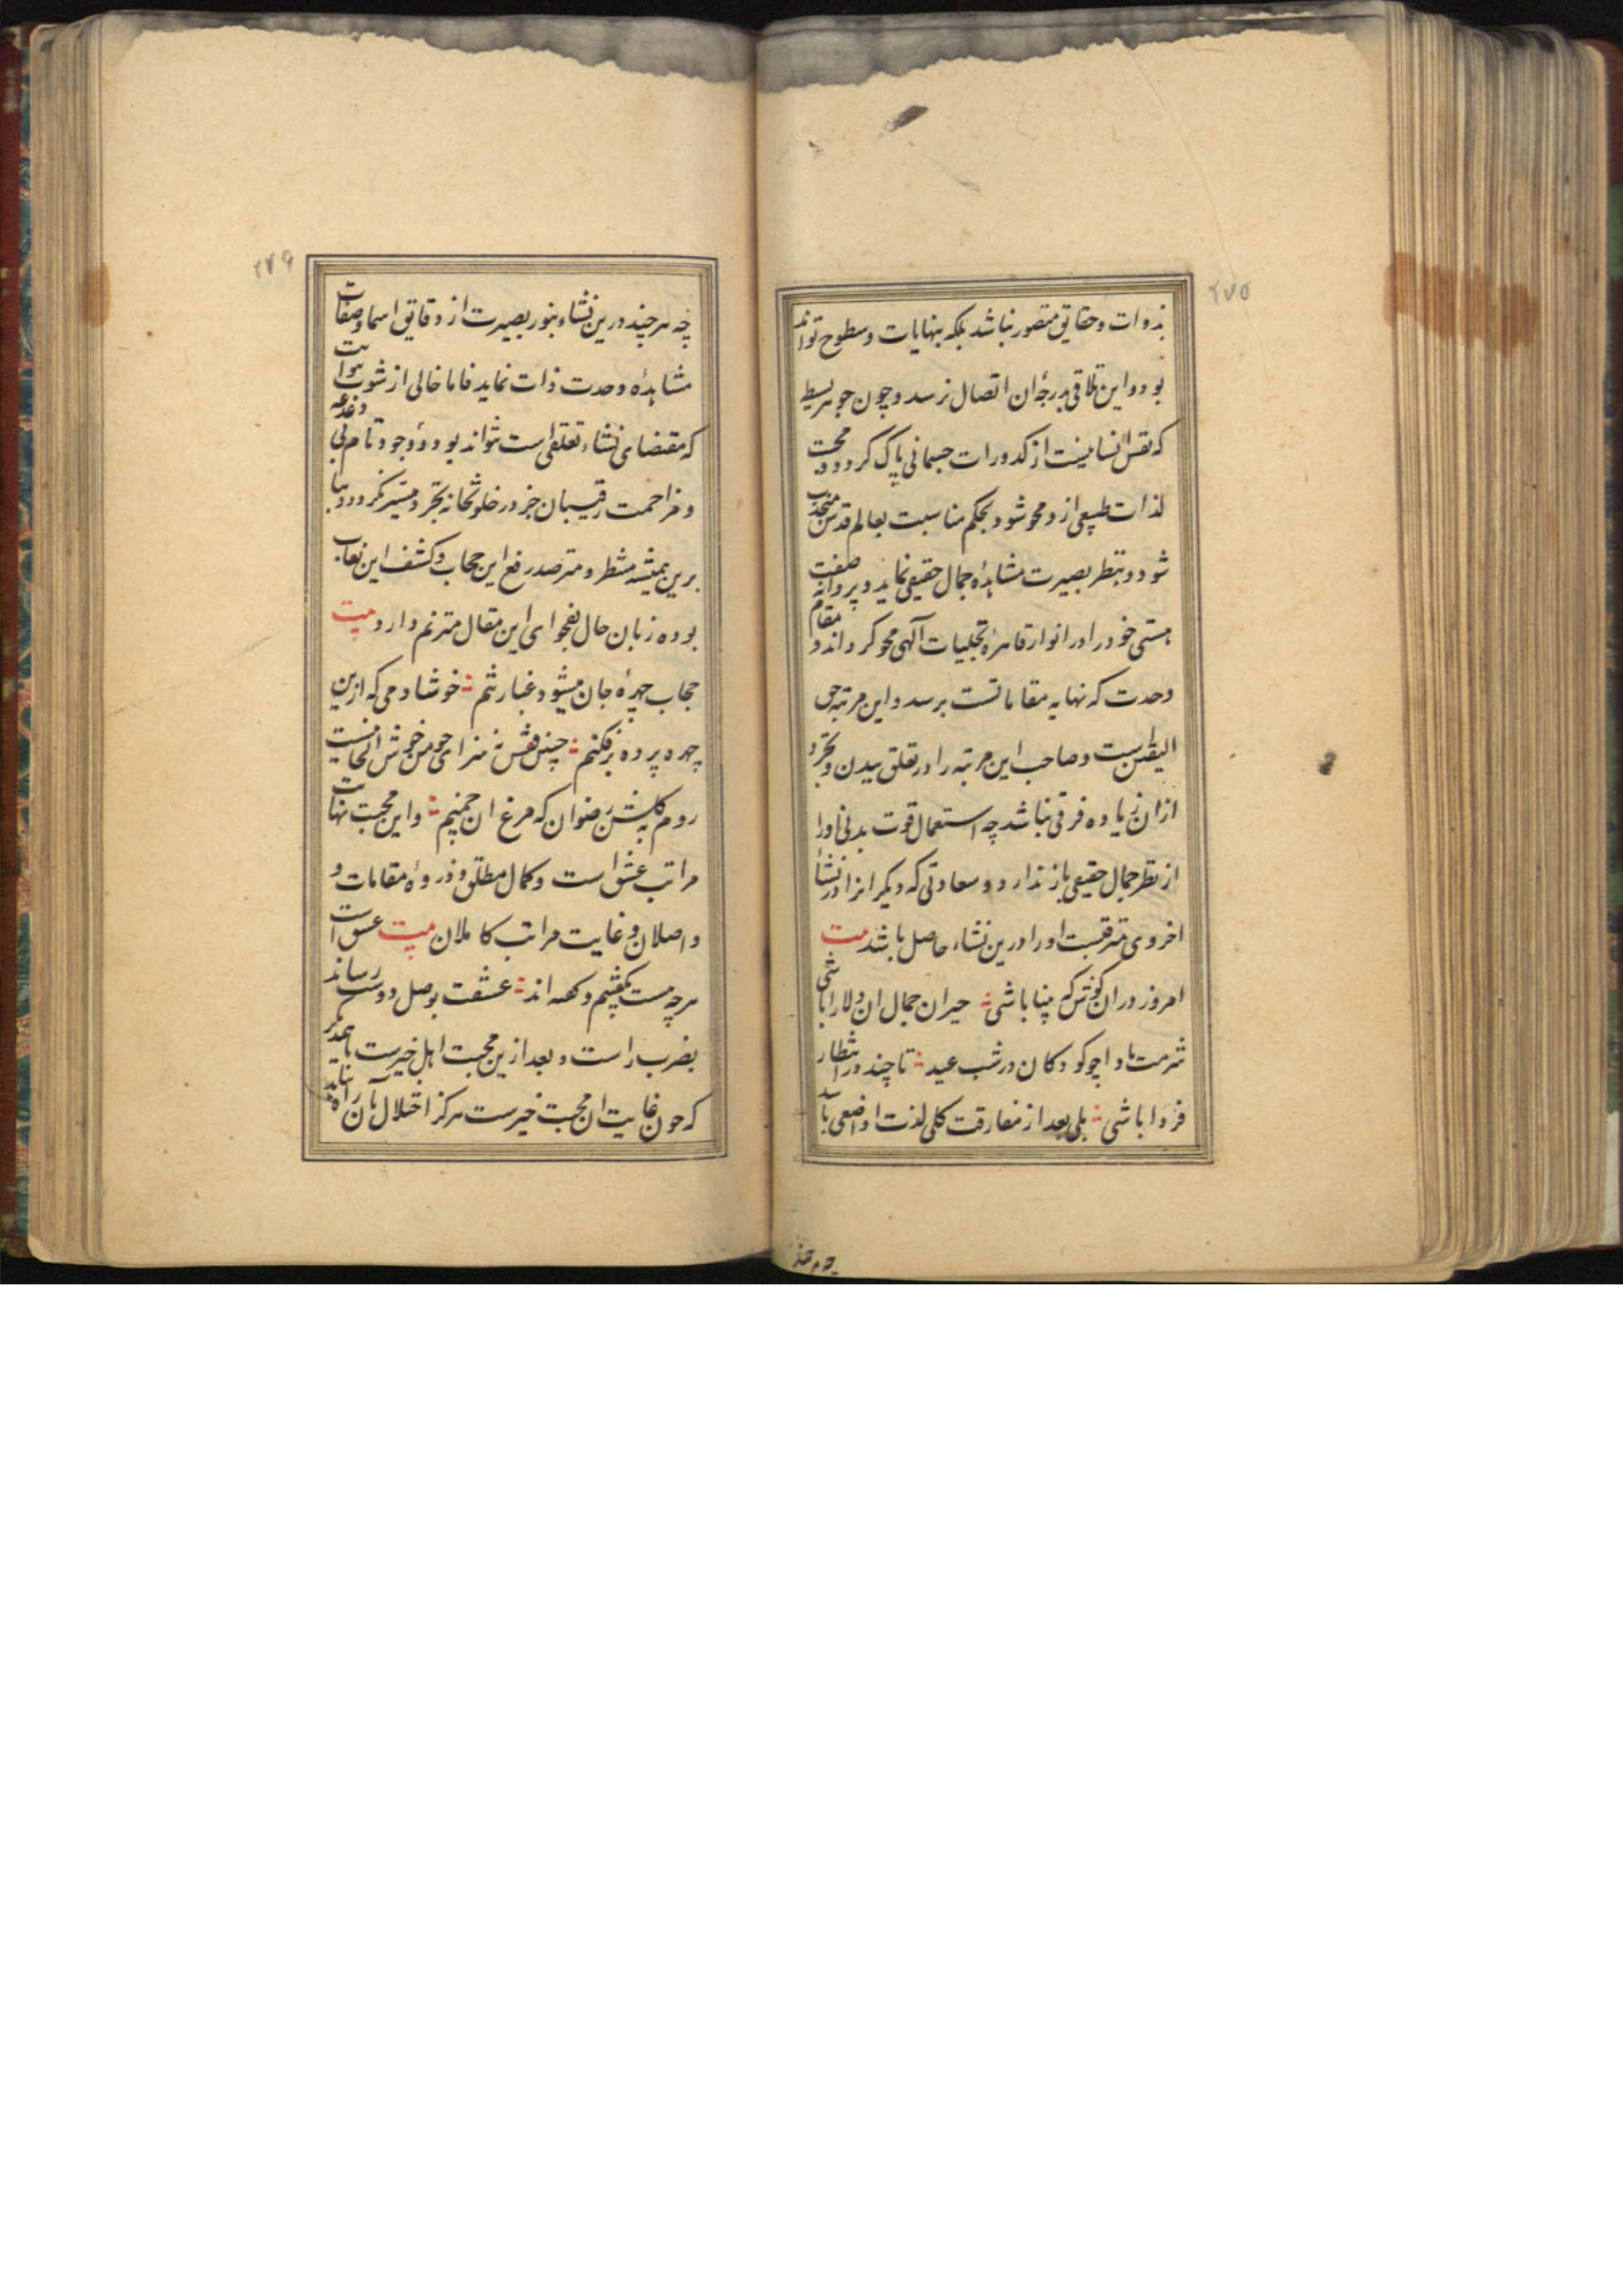 ۲۷۵
بذوات و حقایق متصور نباشد بلکه بنهایات و سطوح تواند
بود و این تلاقی بدرجهٔ ان اتصال نرسد و چون جوهر بسیط
که نفس انسانیست از کدورات جسمانی پاک کردد و محبت
لذات طبیعی ازو محو شود بحکم مناسبت بعالم قدس منجذب
شود و بنظر بصیرت مشاهدهٔ جمال حقیقی نماید و پروانه صفت
هستی خود را در انوار قاهرهٔ تجلیات آلهی محو کرداند و مقام
وحدت که نهایه مقاماتست برسد و این مرتبه حق
الیقین است و صاحب این مرتبه را در تعلق ببدن و تجرد
ازان زیاده فرقی نباشد چه استعمال قوت بدنی او را
از نظر جمال حقیقی باز ندارد و سعادتی که دیگرانرا در نشأ
اخروی مترقبست او را درین نشاء حاصل باشد بیت
امروز دران کوش که بینا باشی حیران جمال ان دلارا باشی
شرمت بادا چو کودکان در شب عید تا چند در انتظار
فردا باشی بلی بعد از مفارقت کلی لذت او اضعی باشد
چه هر چند
۲۷۶
چه هر چند درین نشاء بنور بصیرت از دقایق اسما و صفات
مشاهدهٔ وحدت ذات نماید فاما خالی از شوب
که مقتضای نشاء تعلقی است نتواند بود و وجود تام بی دغدغه
و مزاحمت رقیبان جز در خلوتخانه تجرد میسر نکردد
برین همیشه منتظر و مترصد رفع این حجاب و کشف این نقاب
بوده زبان حال بفحوای این مقال مترنم دارد بیت
حجاب چهرهٔ جان میشود غبار تنم خوشا دمی که ازین
چهره پرده برفکنم چنین قفس نه سزای چو من خوش الحانیست
روم بکلشن رضوان که مرغ ان چمنم و این محبت نهایت
مراتب عشق است و کمال مطلق و ذروهٔ مقامات و
واصلان و غایت مراتب کاملان بیت عشق است
هرچه هست بگفتیم و گفته اند عشقت بوصل دوست رساند
بضرب راست و بعد ازین محبت اهل خیرست با همدگر
که چون غایت ان محبت خیرست هرکز اختلال بآن راه نیابد